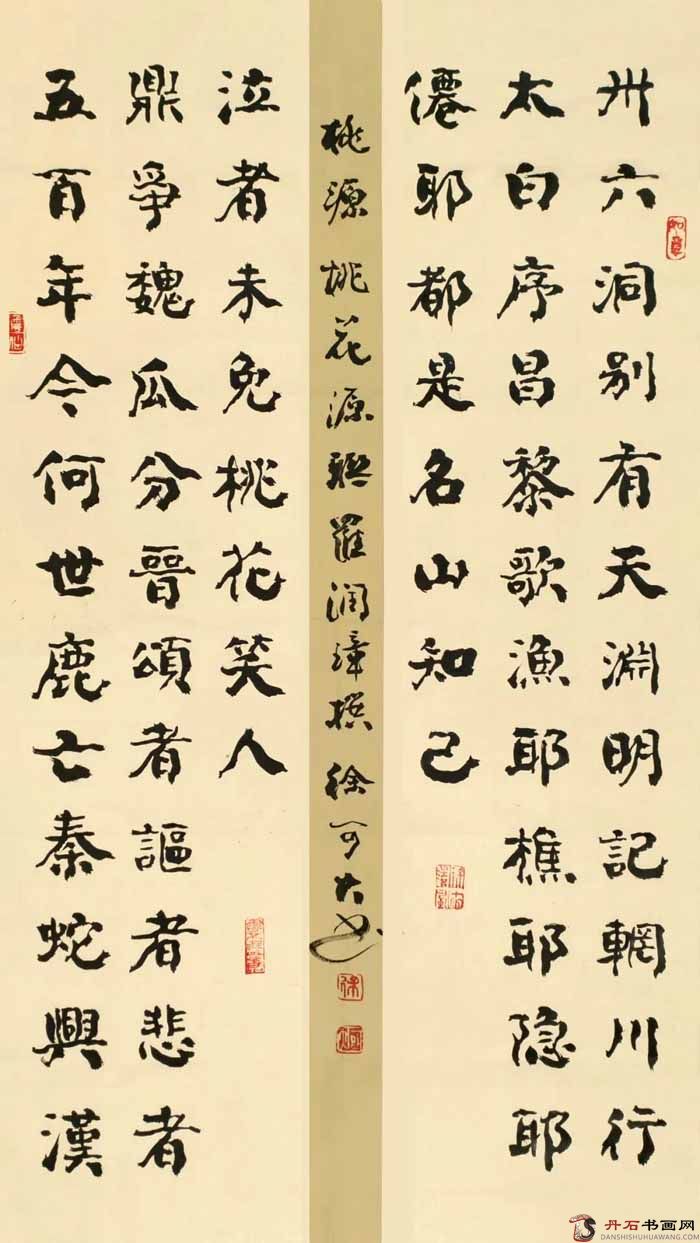 卅六洞别有天淵明記輞川行
太白序昌黎歌漁耶樵耶隐耶
僊耶都是名山知己
五百年今何世鹿亡秦蛇興漢
鼎爭魏瓜分晉頌者謳者悲者
泣者未免桃花笑人
桃源桃花源聯羅潤璋撰徐可大书
如意
丹石书画网
DANSHISHUHUAWANG.COM